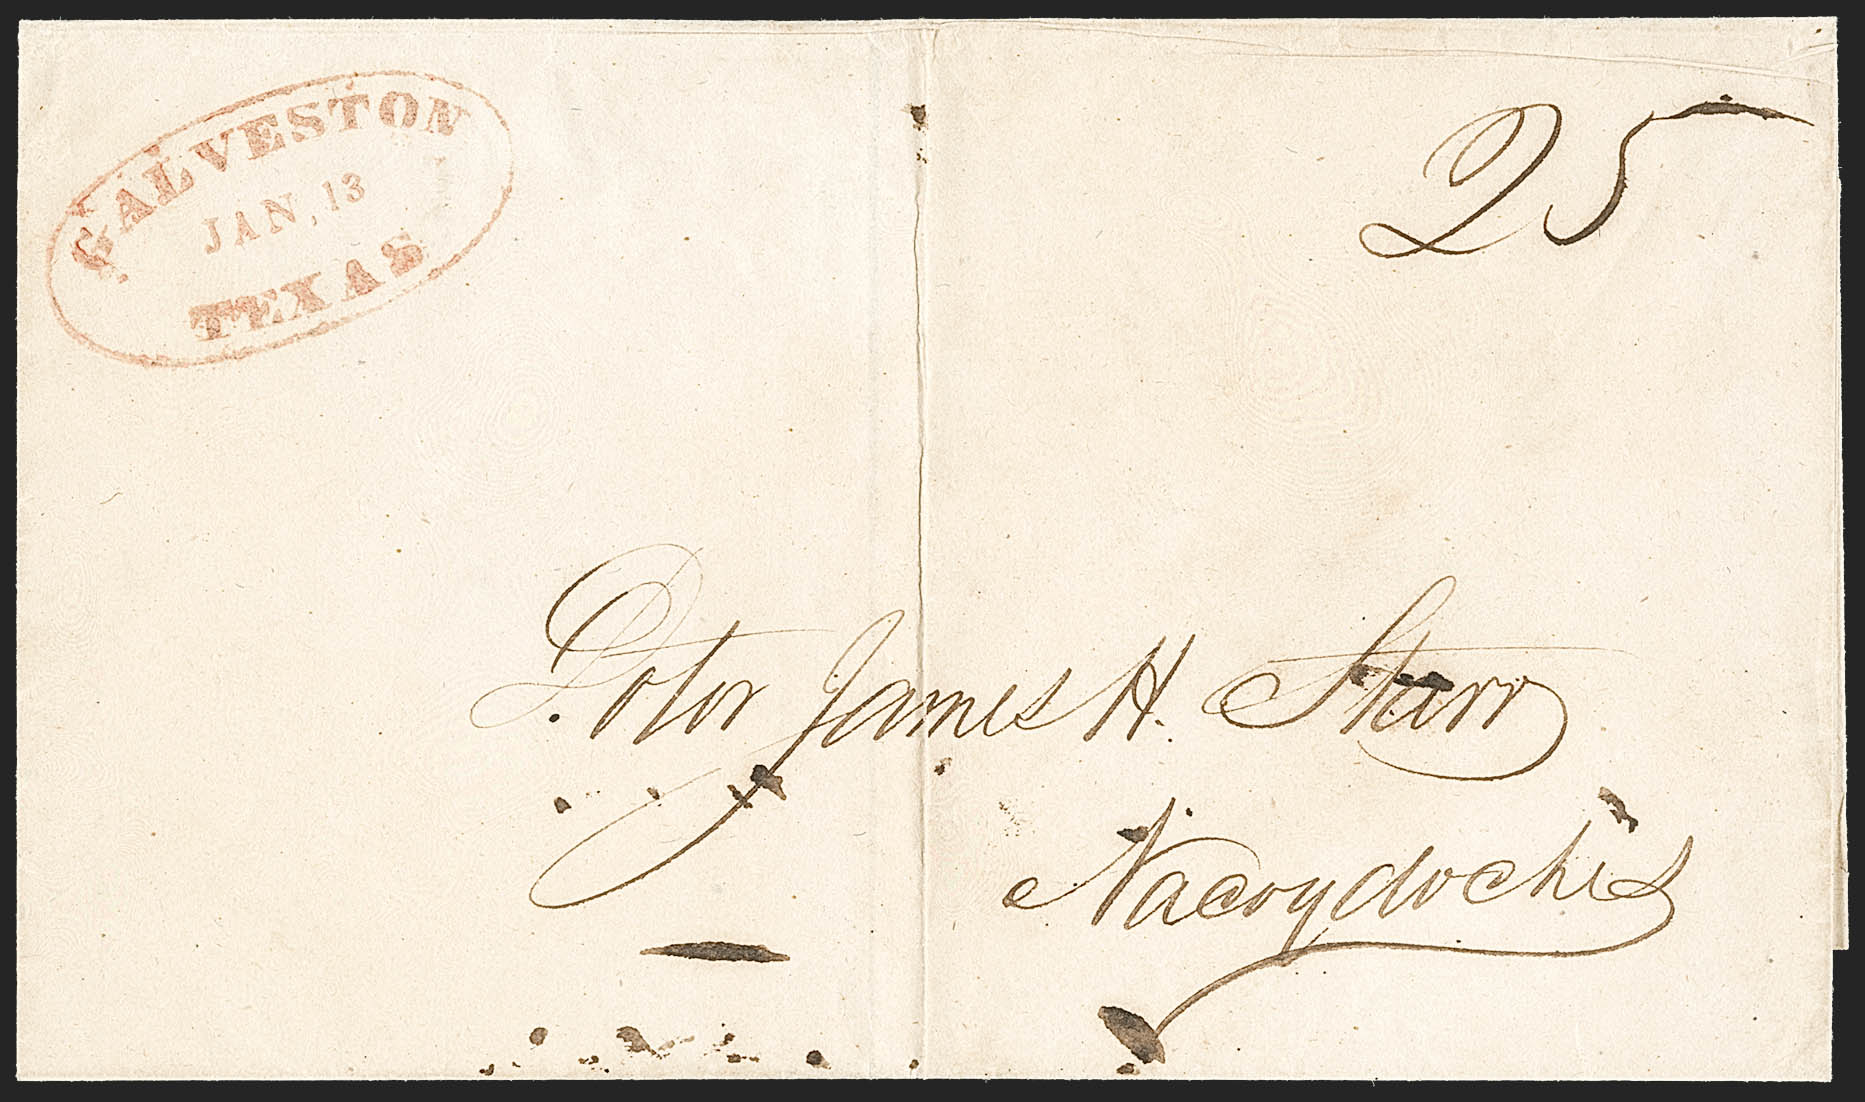 GALVESTON
JAN, 13
TEXAS
25
Dotor James H. Starr
Nacogdoches